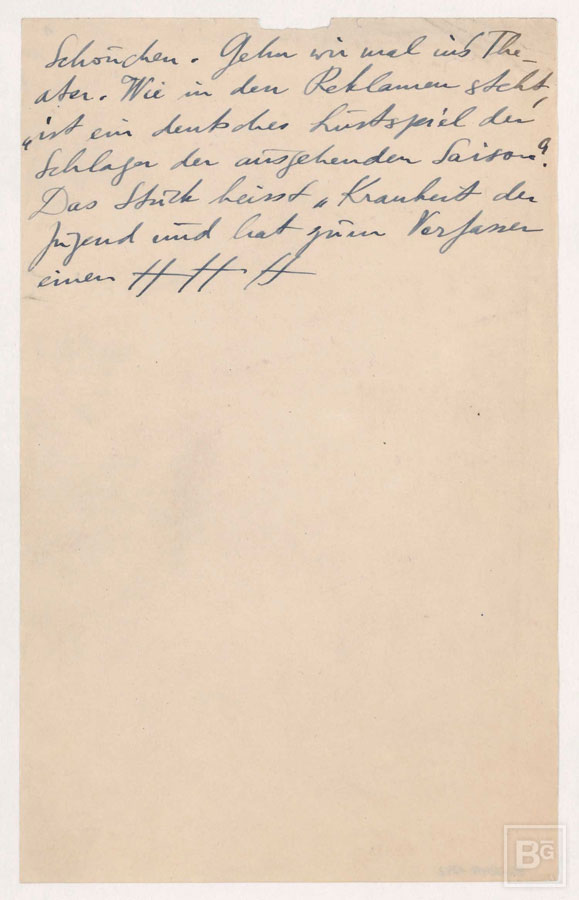 Schönchen. Gehn wir mal ins The-
ater. Wie in den Reklamen steht,
"ist ein deutsches Lustspiel der
Schlager der ausgehenden Saison".
Das Stück heisst „Krankheit der
Jugend und hat zum Verfasser
einen
BG